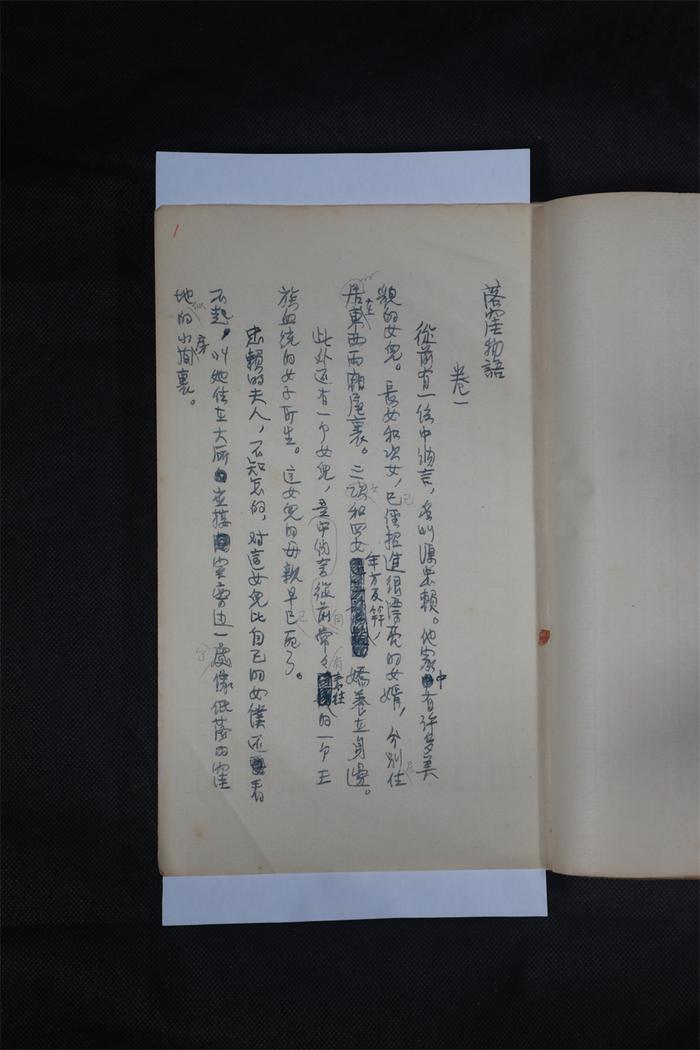 落窪物語
卷一
從前有一位中納言，名叫源忠賴。他家中有许多美
貌的女兒。長女和次女，已經招進很漂亮的女婿，分別住
在東西兩廂屋裏。三女和四女年方及笄，嬌養在身邊。
此外还有一个女兒，是中納言從前常々來往的一个王
族血統的女子所生。這女兒的母親早已死了。
忠賴的夫人，不知怎的，对這女兒比自己的女僕还看
不起，叫她住在大所正接室旁边一處像低落的窪
地的小房间裏。
1